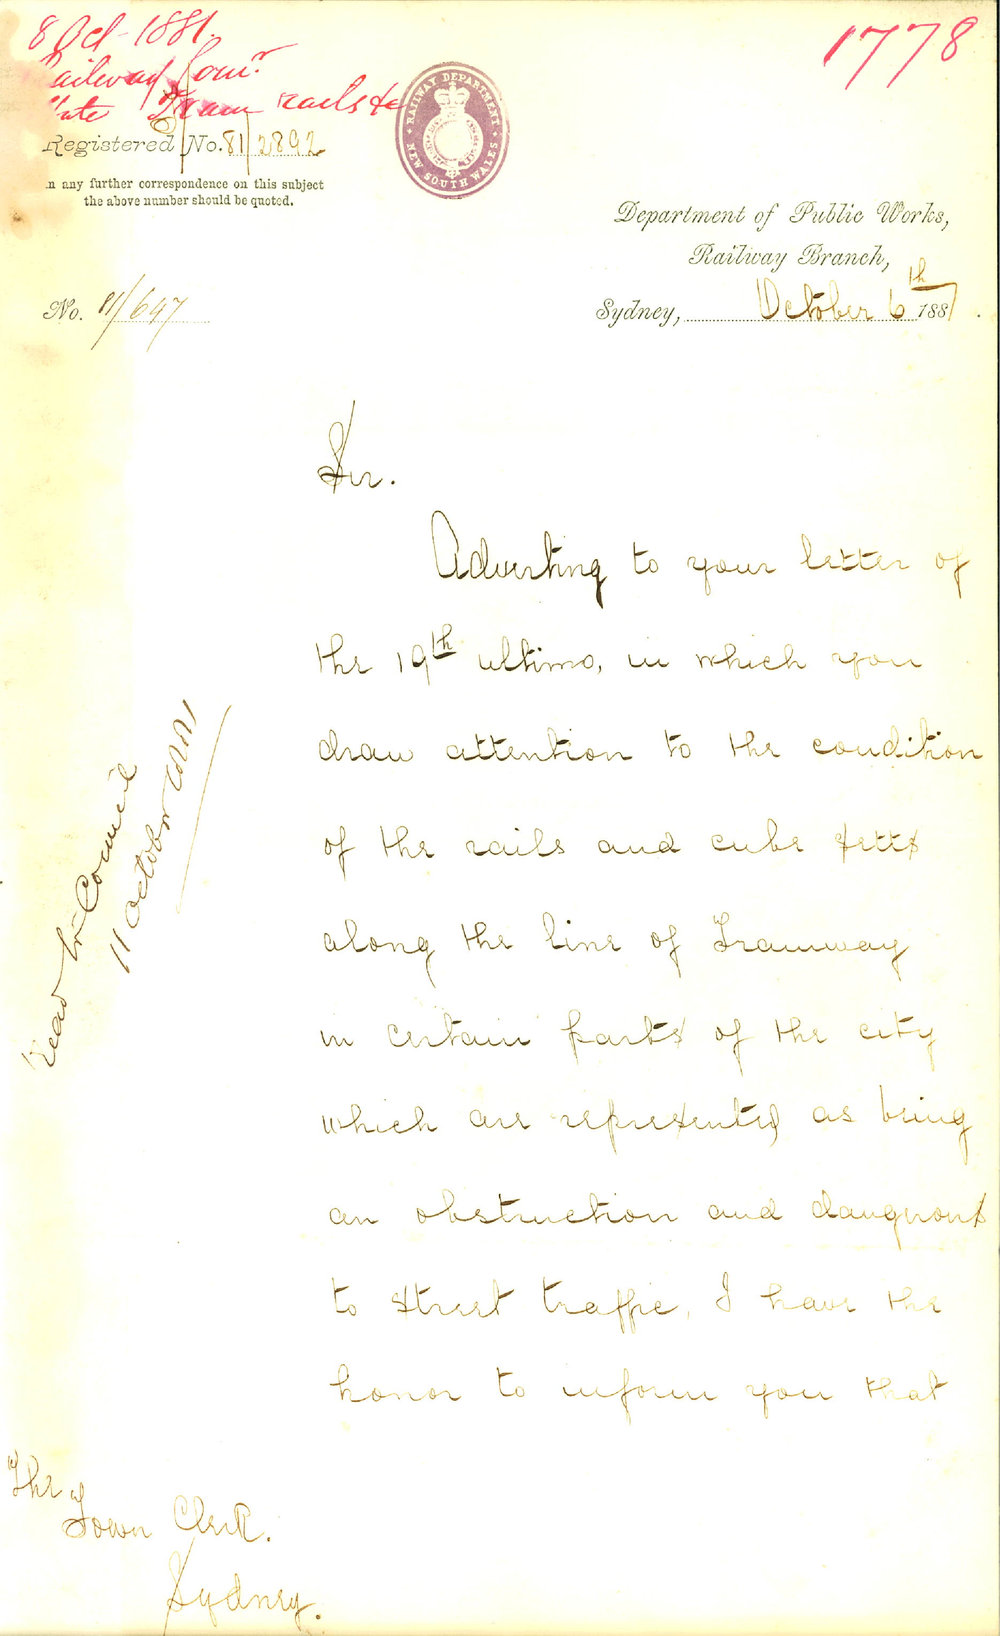 8 Oct - 1881.
Railway Comr.
State Tram rails &c
1778
Registered No. 81/2892
In any further correspondence on this subject
the above number should be quoted.
RAILWAY DEPARTMENT
NEW SOUTH WALES
Department of Public Works,
Railway Branch,
Sydney, October 6th 1881.
No. 81/647
Sir.
Adverting to your letter of
the 19th ultimo, in which you
draw attention to the condition
of the rails and cube setts
along the line of Tramway
in certain parts of the city
which are represented as being
an obstruction and dangerous
to street traffic, I have the
honor to inform you that
Read in Council
11 October 1881
The
Town Clerk.
Sydney.